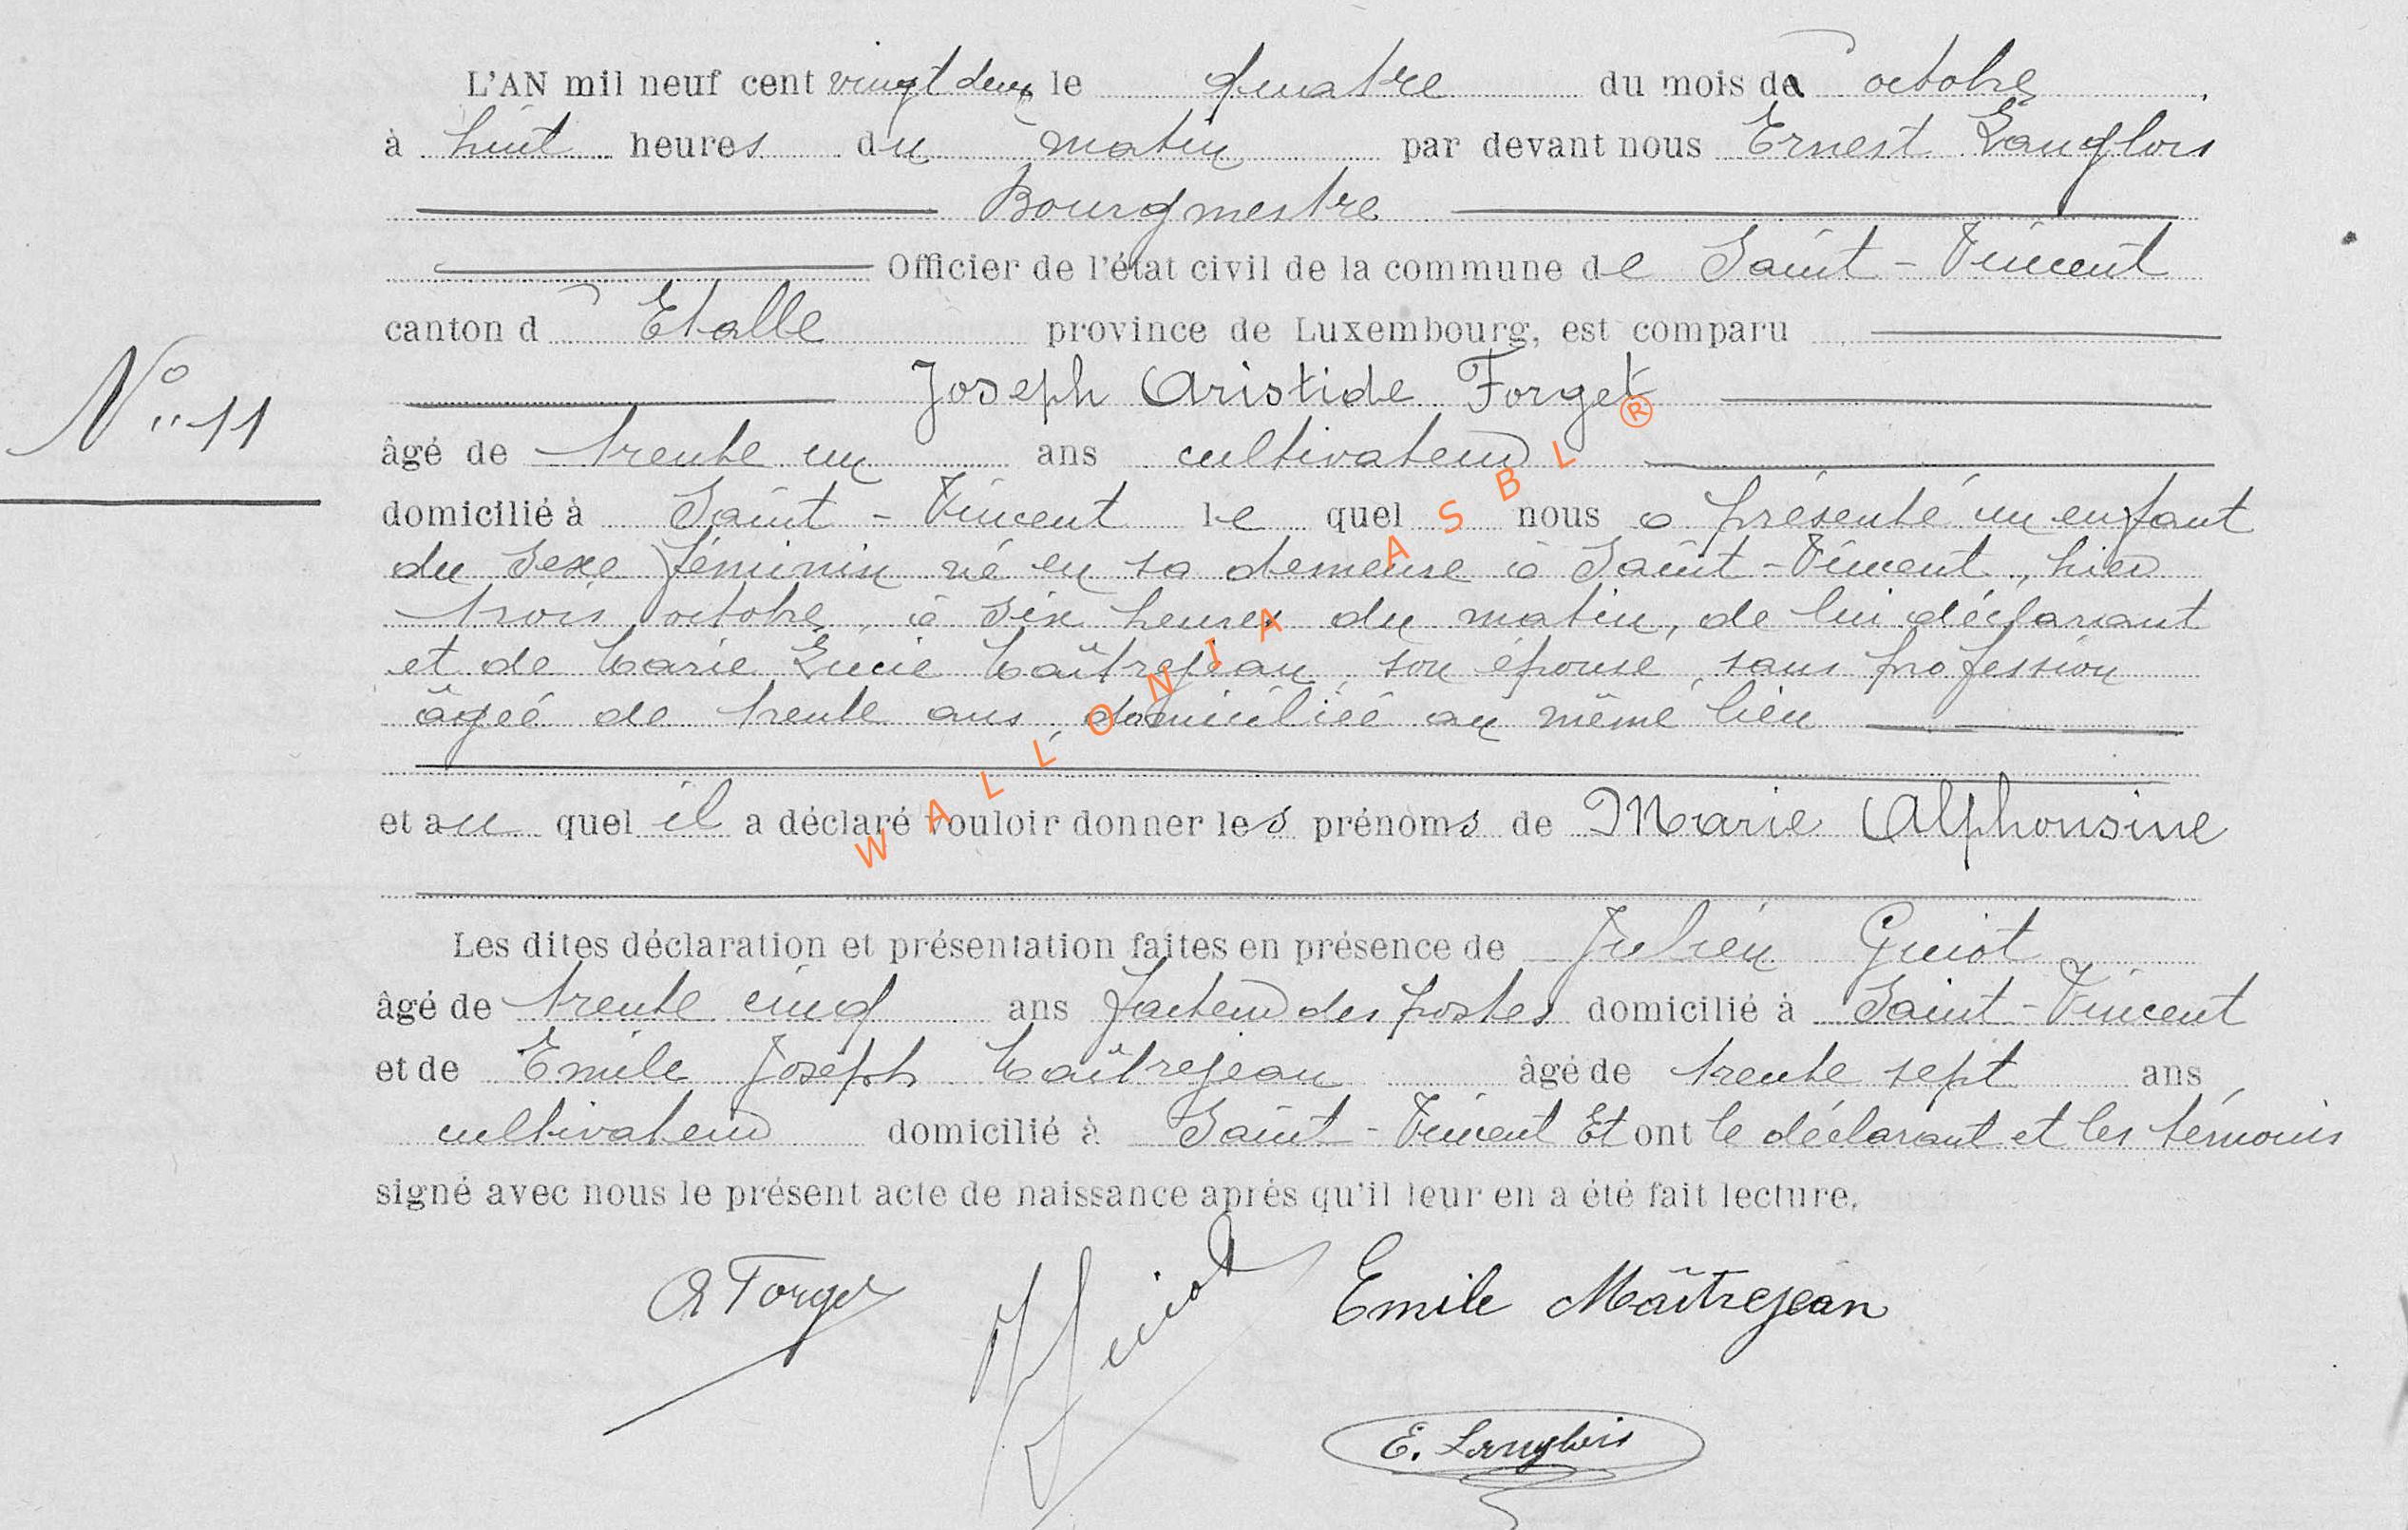 L'AN mil neuf cent vingt deux le quatre du mois de octobre
à huit heures du matin par devant nous Ernest Langlois
Bourgmestre
Officier de l'état civil de la commune de Saint-Vincent
canton d Etalle province de Luxembourg, est comparu
N° 11
Joseph Aristide Forget
âgé de trente un ans cultivateur
domicilié à Saint-Vincent le quel nous a présenté un enfant
du sexe féminin né en sa demeure à Saint-Vincent, hier
trois octobre, à six heures du matin, de lui déclarant
et de Marie Lucie Maîtrejean, son épouse, sans profession
âgée de trente ans, domiciliée au même lieu
et au quel il a déclaré vouloir donner les prénoms de Marie Alphonsine
Les dites déclaration et présentation faites en présence de Julien Guiot
âgé de trente cinq ans facteur des postes domicilié à Saint-Vincent
et de Emile Joseph Maîtrejean âgé de trente sept ans
cultivateur domicilié à Saint-Vincent Et ont le déclarant et les témoins
signé avec nous le présent acte de naissance après qu'il leur en a été fait lecture.
A Forget
J Guiot
Emile Maîtrejean
E. Langlois
WALLONIA ASBL ®